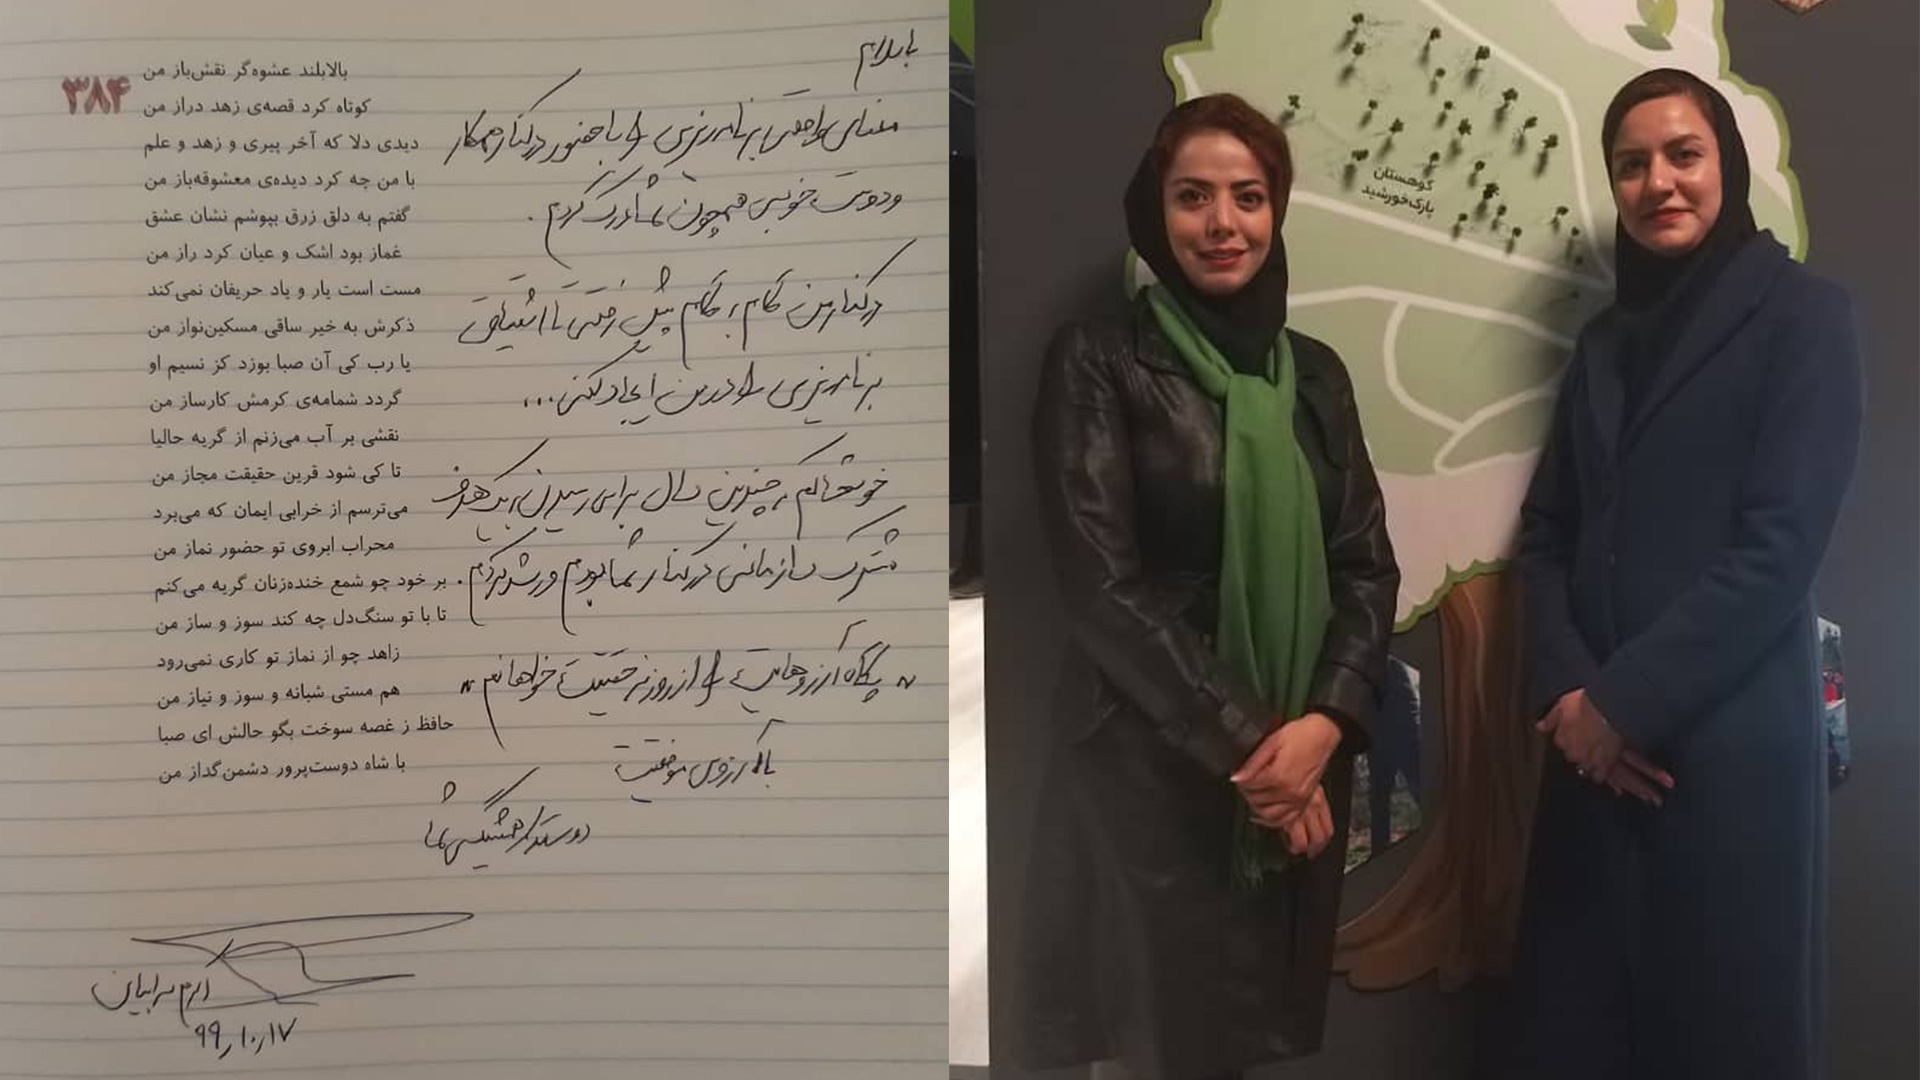 ۳۸۴
بالابلند عشوه‌گر نقش‌باز من
کوتاه کرد قصه‌ی زهد دراز من
دیدی دلا که آخر پیری و زهد و علم
با من چه کرد دیده‌ی معشوقه‌باز من
گفتم به دلق زرق بپوشم نشان عشق
غماز بود اشک و عیان کرد راز من
مست است یار و یاد حریفان نمی‌کند
ذکرش به خیر ساقی مسکین‌نواز من
یا رب کی آن صبا بوزد کز نسیم او
گردد شمامه‌ی کرمش کارساز من
نقشی بر آب می‌زنم از گریه حالیا
تا کی شود قرین حقیقت مجاز من
می‌ترسم از خرابی ایمان که می‌برد
محراب ابروی تو حضور نماز من
بر خود چو شمع خنده‌زنان گریه می‌کنم
تا با تو سنگ‌دل چه کند سوز و ساز من
زاهد چو از نماز تو کاری نمی‌رود
هم مستی شبانه و سوز و نیاز من
حافظ ز غصه سوخت بگو حالش ای صبا
با شاه دوست‌پرور دشمن‌گداز من
با سلام
معنای واقعی برنامه‌ریزی را با حضور در کنار همکار
و دوست خوبی همچون شما درک کردم.
در کنار من گام به گام پیش رفتی تا اشتیاق
برنامه‌ریزی را در من ایجاد کنی...
خوشحالم چندین سال برای رسیدن به یک هدف
مشترک سازمانی در کنار شما بودم و رشد کردم.
" پگاه آرزوهایت را از روزنه حقیقت خواهانم "
با آرزوی موفقیت
دوستدار همیشگی شما
اکرم
۹۹٫۱۰٫۱۷
کوهستان
پارک‌خورشید